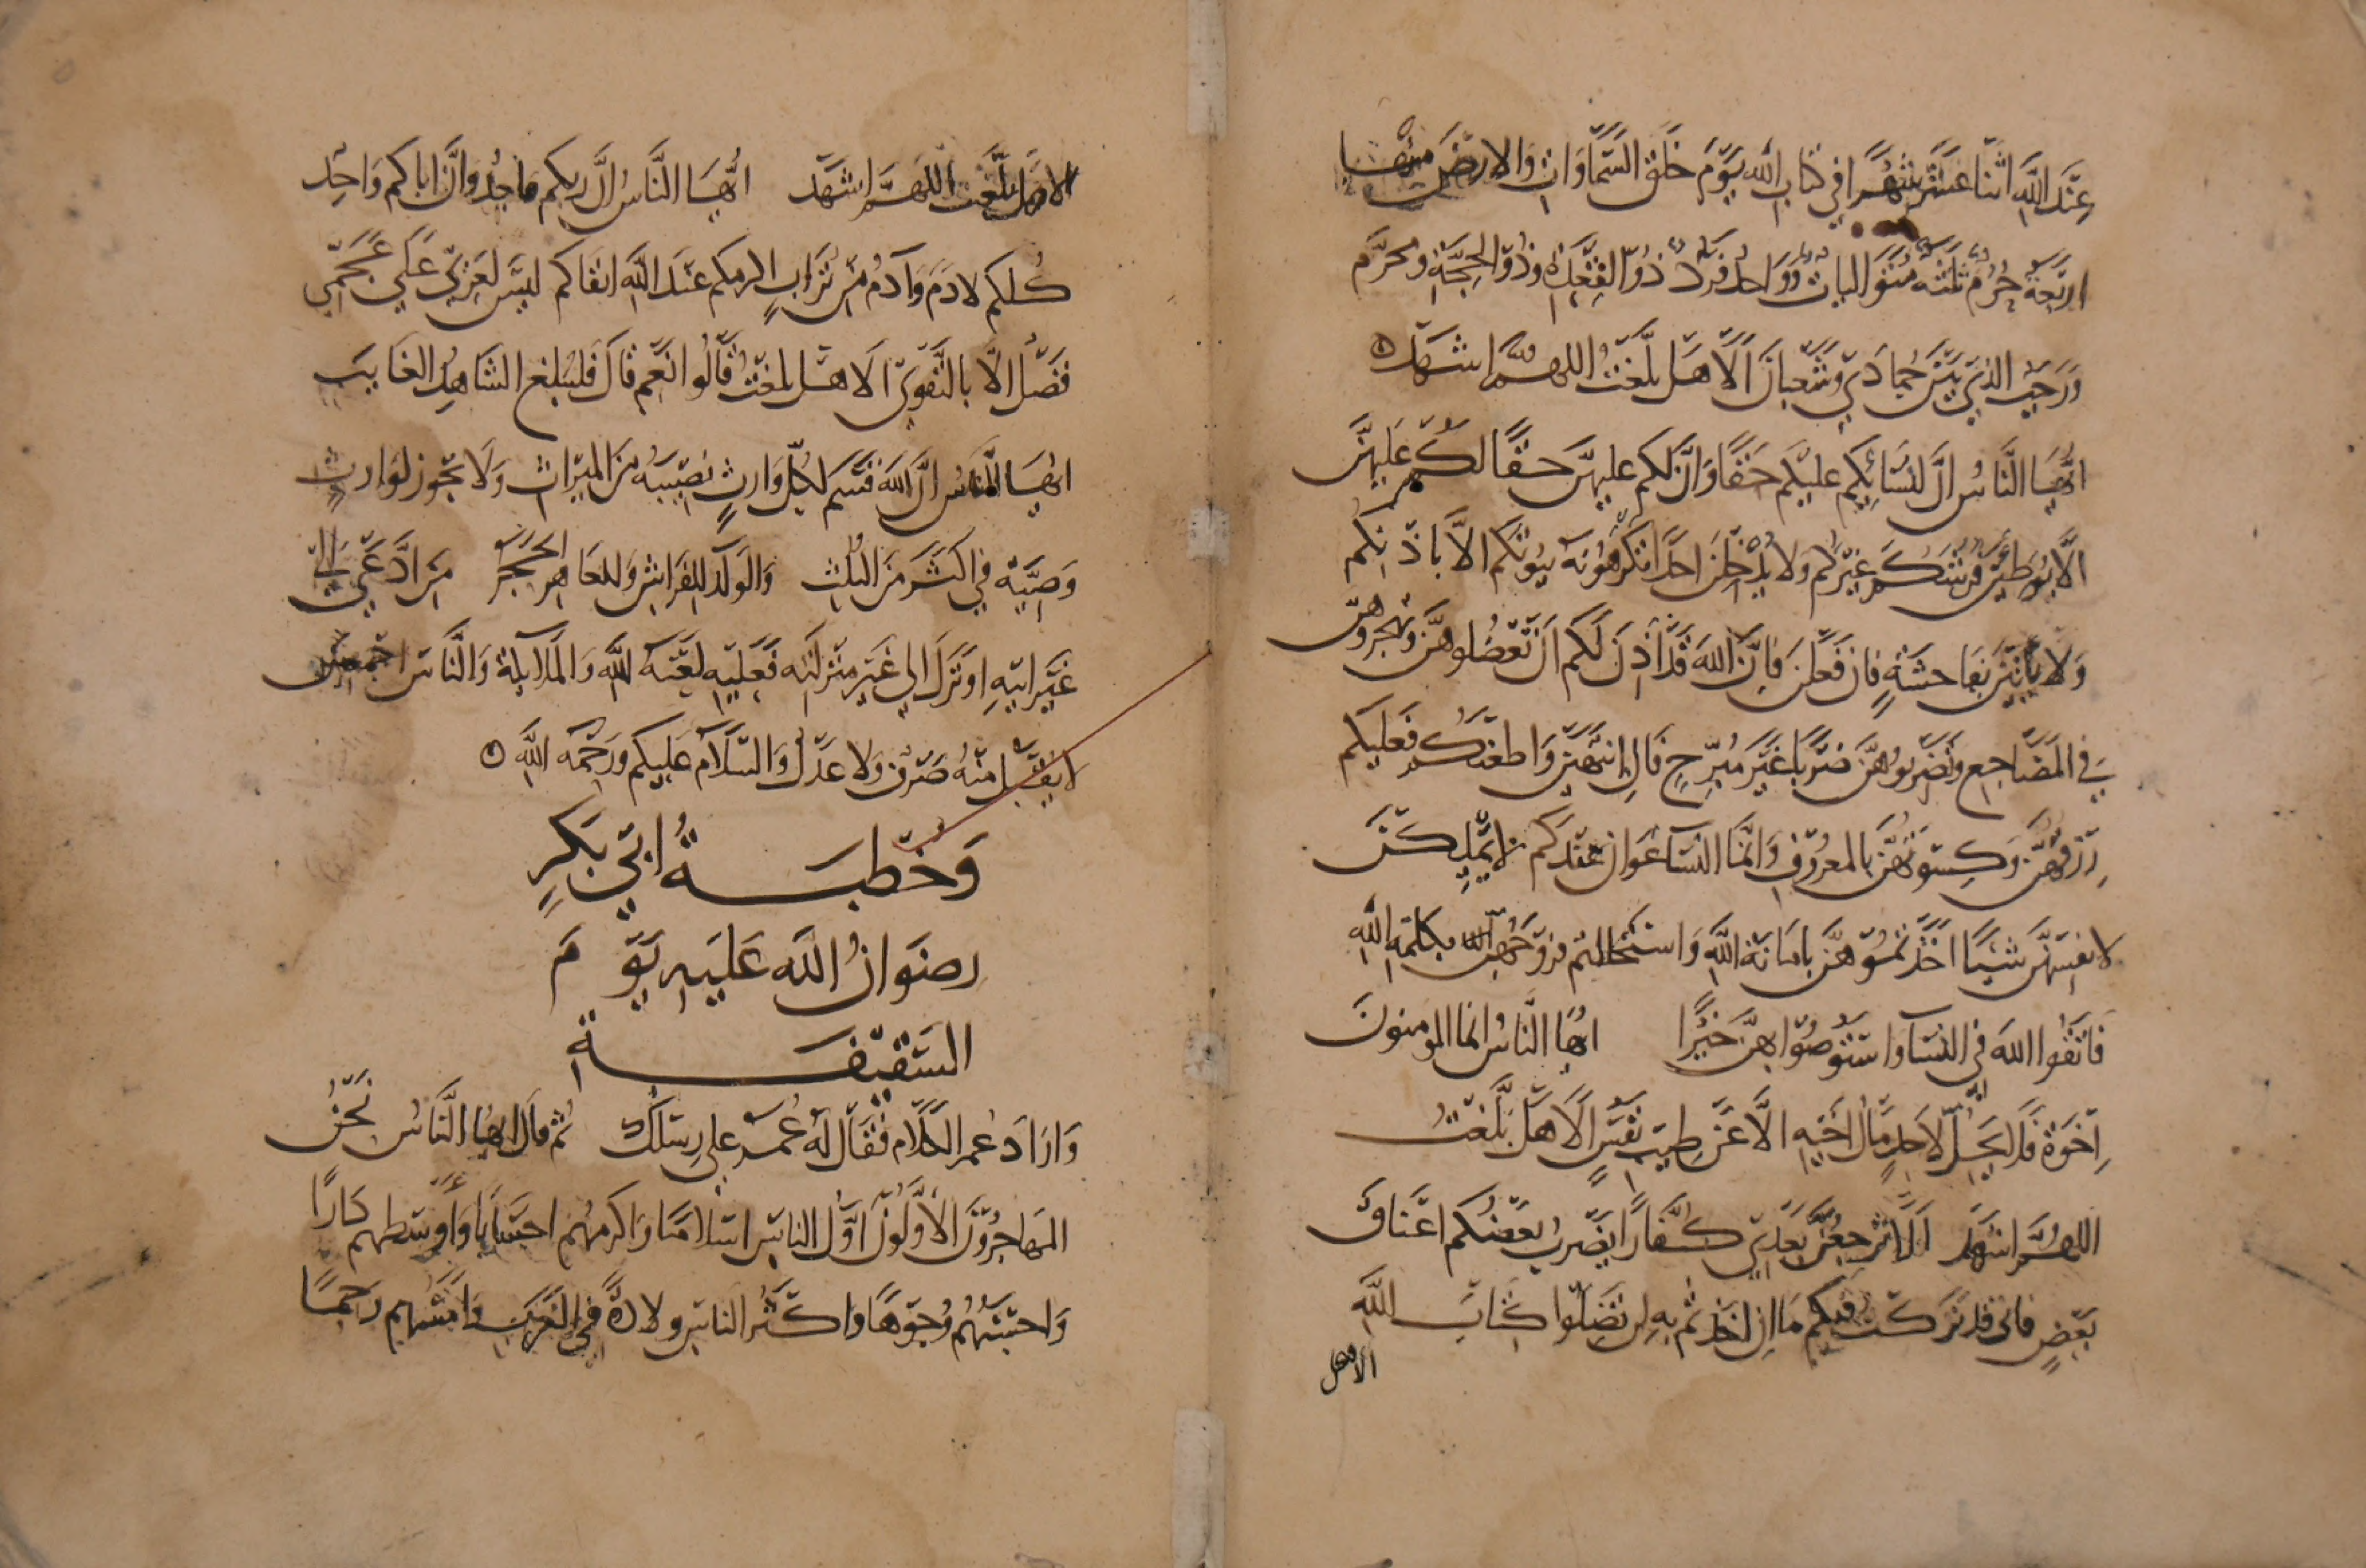 عِنْدَ اللَّهِ اثْنَا عَشَرَ شَهْرًا فِي كِتَابِ اللَّه يَوْمَ خَلَقَ السَّمَاوَاتِ وَالارْضَ مِنْهَا
ارْبَعَةٌ حُرُمٌ ثَلَثَةٌ مُتَوَالِيَاتٌ وَوَاحِدٌ فَرْدٌ ذُو القَعْدَةِ وَذُو الحِجَّةِ وَمحَرَّم
وَرَجَبُ الذِي بَيْنَ جُمَادَى وَشَعْبَانَ أَلَا هَل بَلَّغْتُ اللهُمَّ اشْهَدْ
ايُّهَا النَّاسُ انَّ لنِسَائِكِم عَليْكُم حَقًّا وَانَّ لَكُم عَليهِنَّ حَقًّا لَكُمْ عَليْهِنَّ
الَّا يُوطِيْنَ فُرُشَكُمْ غَيْرَكُم وَلَا يُدْخِلْنَ احَدًا تَكْرَهُونَهُ بُيُوتَكُم الاَّ باذْنِكُم
وَلَا يَاْتِيْنَ بفَاحشَةٍ فان فَعَلْنَ فَإِنَّ اللَّهَ قَدْ أَذِنَ لَكُم انْ تَعْضُلُوهُنَّ وَتهْجُرُوهُنَّ
فِي المَضَاجِع وَتَضْرِبُوهُنَّ ضَرْبًا غَيْرَ مُبَرِّحٍ فَانِ انْتَهَيْنَ وَاطعْنَكُمْ فَعَلَيْكُم
رِزْقُهُنَّ وَكِسْوَتُهُنَّ بالمعْرُوفِ وَانَّمَا النسَآءُ عَوَانٍ عندَكم لا يَمْلِكْنَ
لانفسِهِنَّ شَيْئًا اخَذْتُمُوهُنَّ بامَانَةِ اللَّهِ وَاسْتَحْلَلتُم فرُوجَهُنَّ بكَلمَةِ اللَّهِ
فَاتَّقُوا اللَّهَ في النسَآءِ وَاسْتَوْصُوا بهنَّ خَيْرًا ايُّهَا النَّاسُ انما المومنونَ
اِخْوَةٌ فَلَا يَحِلُّ لاحَدٍ مَالُ اخِيْهِ الَّا عَنْ طِيبِ نَفْسٍ أَلَا هَلْ بَلَّغتُ
اللهُمَّ اشْهَدْ أَلَا لَا تَرْجِعُنَّ بَعْدِي كُفَّارًا يَضْرِبُ بَعْضُكُم اعْنَاقَ
بَعْضٍ فَانى قَد تَرَكتُ فيكُم مَا ان اخذتُم بهِ لن تَضلّوا كِتَابَ اللَّهِ
الا هل
الا هَل بَلَّغْتُ اللهُمَّ اشْهَدْ أَيُّهَا النَّاسُ انَّ رَبكم وَاحِدٌ وَانَّ ابَاكم وَاحِد
كُلكُم لادَمَ وَآدَمُ مِنْ تُرَابٍ اكرمكم عندَ اللَّهِ اتقَاكم ليْسَ لعَرَبِيٍّ عَلَى عَجَمِي
فَضْلٌ الَّا بالتَّقْوَى أَلَا هَل بلغتُ قَالُوا نَعَم قَالَ فَلْيُبَلغ الشَّاهِدُ الغَايبَ
ايُّهَا النَّاسُ انَّ اللَّهَ قَسَمَ لكُلِّ وَارثٍ نَصِيْبَهُ مِنَ الميْرَاثِ وَلَا تجُوز لِوَارثٍ
وَصِيَّة فِي اكثَر مِنَ الثُلثِ وَالوَلَد للفِرَاشِ وَللعَاهِر الحَجَرُ مَن ادَّعَى الَى
غَيْرِ ابيْهِ او تَوَلَّى الي غَيْرِ مَوَاليْه فَعَلَيْهِ لَعْنَةُ اللَّهِ وَالمَلَايكَةِ وَالنَّاسِ اجْمعينَ
لا يقْبَل منْهُ صَرْفٌ وَلا عَدْلٌ وَالسَّلَامُ عَلَيكم وَرَحْمَةُ اللَّهِ
وَخُطْبَةُ ابِي بَكْرٍ
رِضْوَانُ اللَّهِ عَلَيْهِ يَوْمَ
السَّقِيْفَةِ
وَارَادَ عُمر الكَلَام فَقَالَ لَهُ عُمَر علي رِسْلكَ ثُم قَالَ ايهَا النَّاسُ نَحْنُ
المهَاجِرُوْنَ الأَوَّلُونَ اوَّلُ الناسِ اسْلَامًا وَاكرمهُم احسَابًا وَأَوْسَطهم دَارًا
وَاحسَنهُم وُجُوْهًا وَاكثَرُ الناسِ ولادَةً فِي العَرَبِ وَامَسّهم رَحِمًا